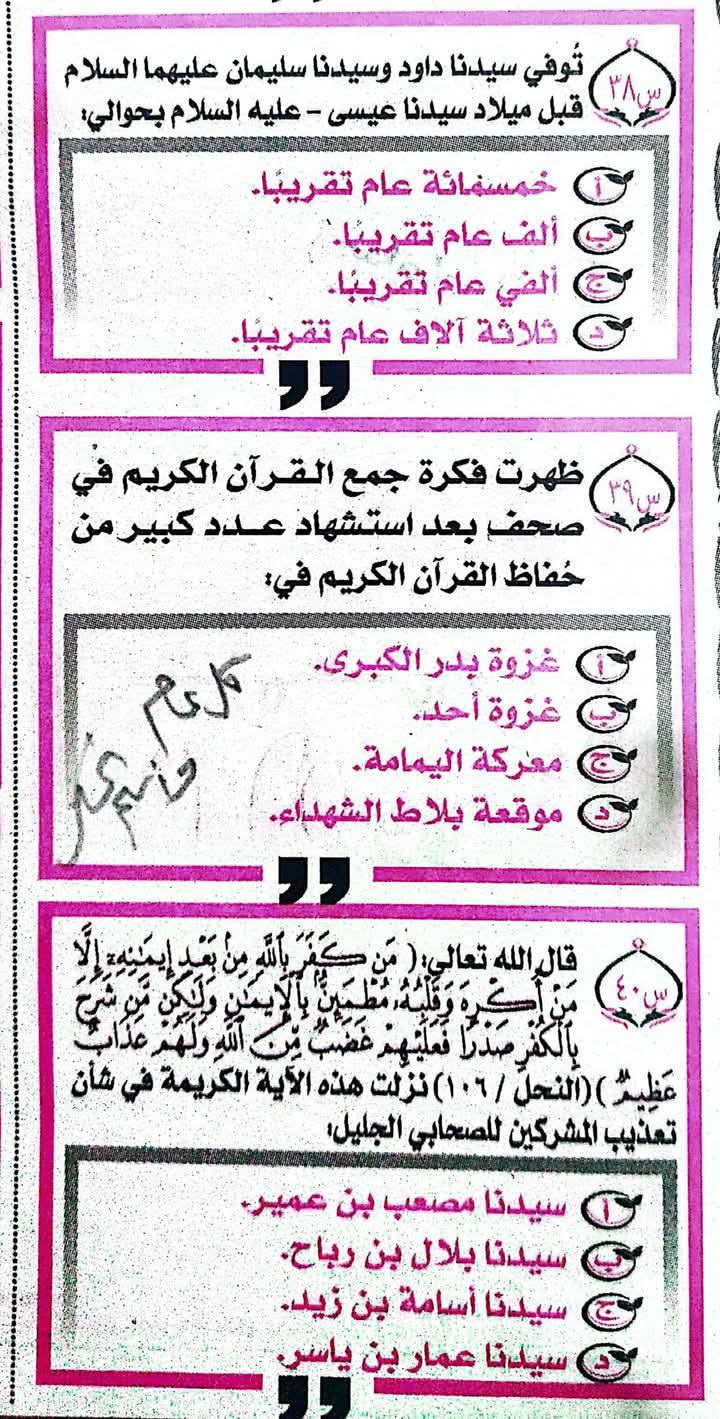 س٣٨
تُوفي سيدنا داود وسيدنا سليمان عليهما السلام
قبل ميلاد سيدنا عيسى - عليه السلام بحوالي:
أ خمسمائة عام تقريبًا.
ب ألف عام تقريبًا.
ج ألفي عام تقريبًا.
د ثلاثة آلاف عام تقريبًا.
س٣٩
ظهرت فكرة جمع القرآن الكريم في
صحف بعد استشهاد عدد كبير من
حُفاظ القرآن الكريم في:
أ غزوة بدر الكبرى.
ب غزوة أحد.
ج معركة اليمامة.
د موقعة بلاط الشهداء.
كل عام
وانتم بخير
س٤٠
قال الله تعالى: ( مَن كَفَرَ بِاللَّهِ مِنۢ بَعْدِ إِيمَٰنِهِۦٓ إِلَّا
مَنْ أُكْرِهَ وَقَلْبُهُۥ مُطْمَئِنٌّۢ بِالْإِيمَٰنِ وَلَٰكِن مَّن شَرَحَ
بِالْكُفْرِ صَدْرًا فَعَلَيْهِمْ غَضَبٌ مِّنَ اللَّهِ وَلَهُمْ عَذَابٌ
عَظِيمٌ ) (النحل / ١٠٦) نزلت هذه الآية الكريمة في شأن
تعذيب المشركين للصحابي الجليل:
أ سيدنا مصعب بن عمير.
ب سيدنا بلال بن رباح.
ج سيدنا أسامة بن زيد.
د سيدنا عمار بن ياسر.